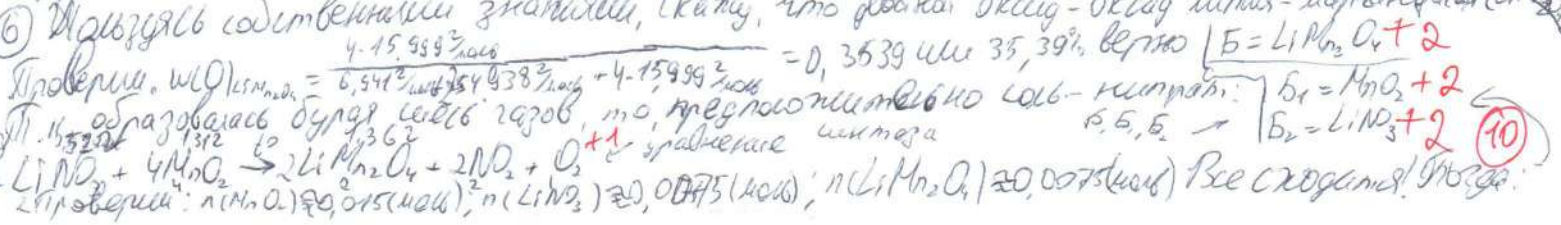 ⑥ Пользуясь собственными знаниями, скажу, что двойной оксид - оксид лития-
Проверим. w(O)LiMn₂O₄ = 4·15,999 г/моль / 6,941 г/моль + 2·54,938 г/моль + 4·15,999 г/моль = 0,3539 или 35,39% верно Б = LiMn₂O₄ +2
Т.к. образовалась бурая смесь газов, то, предположительно соль - нитрат: Б₁ = MnO₂ +2
Б, Б₁, Б₂ → Б₂ = LiNO₃ +2 (10)
2LiNO₃ + 4MnO₂ → 2LiMn₂O₄ + 2NO₂ + O₂ +1 ← уравнение синтеза
Проверим: n(MnO₂) ≈ 0,015 (моль); n(LiNO₃) ≈ 0,0075 (моль); n(LiMn₂O₄) ≈ 0,0075 (моль) Все сходится! Тогда: